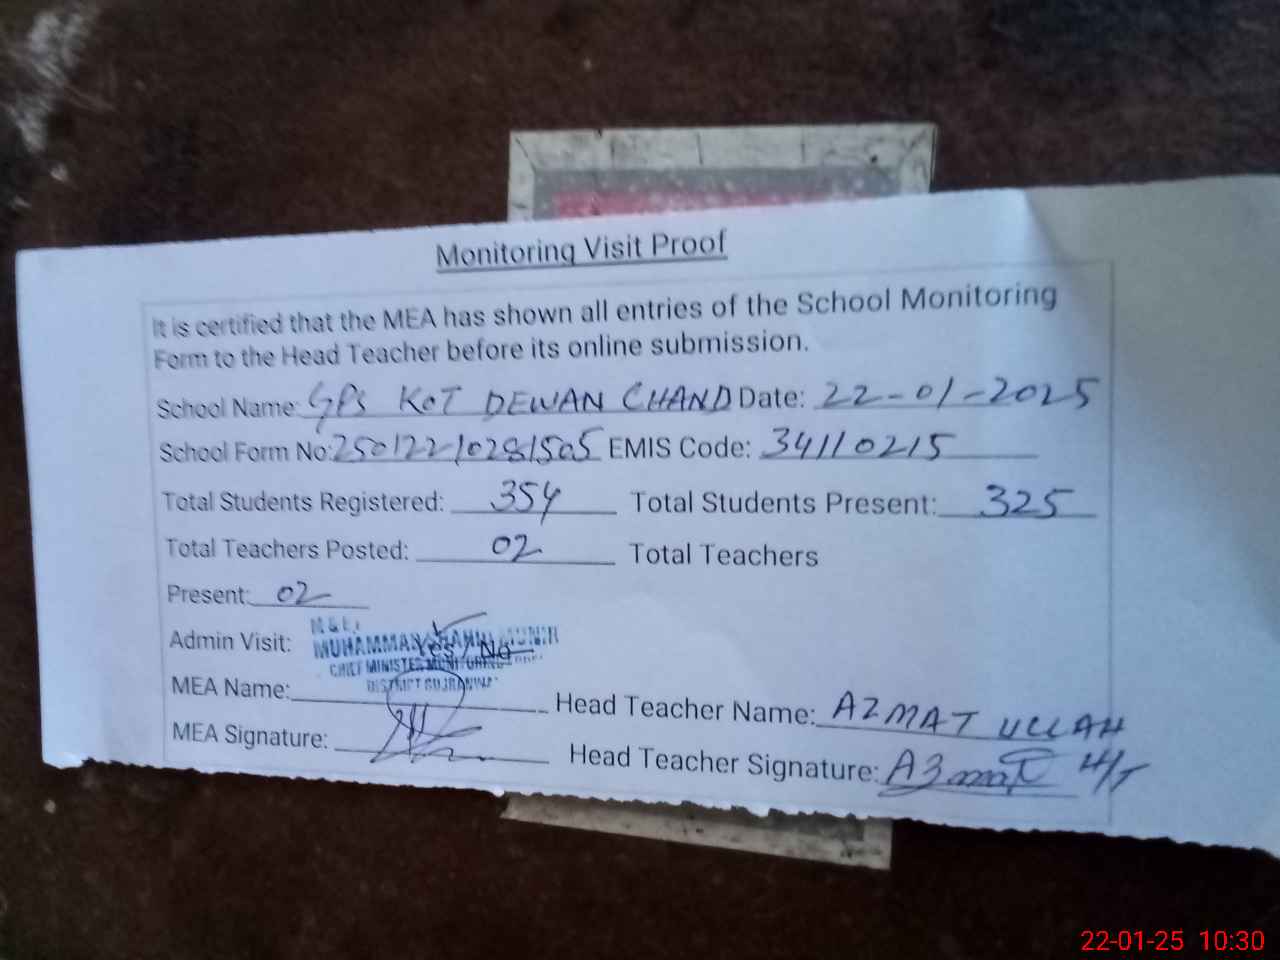 Monitoring Visit Proof
It is certified that the MEA has shown all entries of the School Monitoring
Form to the Head Teacher before its online submission.
School Name: GPS KOT DEWAN CHAND Date: 22-01-2025
School Form No: 25012210281505 EMIS Code: 34110215
Total Students Registered: 354 Total Students Present: 325
Total Teachers Posted: 02 Total Teachers
Present: 02
M & E
Admin Visit: MUHAMMAD MUNIR
Yes / No
CHIEF MINISTER MONITORING
DISTRICT GUJRANWALA
MEA Name: Head Teacher Name: AZMAT ULLAH
MEA Signature: Head Teacher Signature: Azmat H/T
22-01-25 10:30